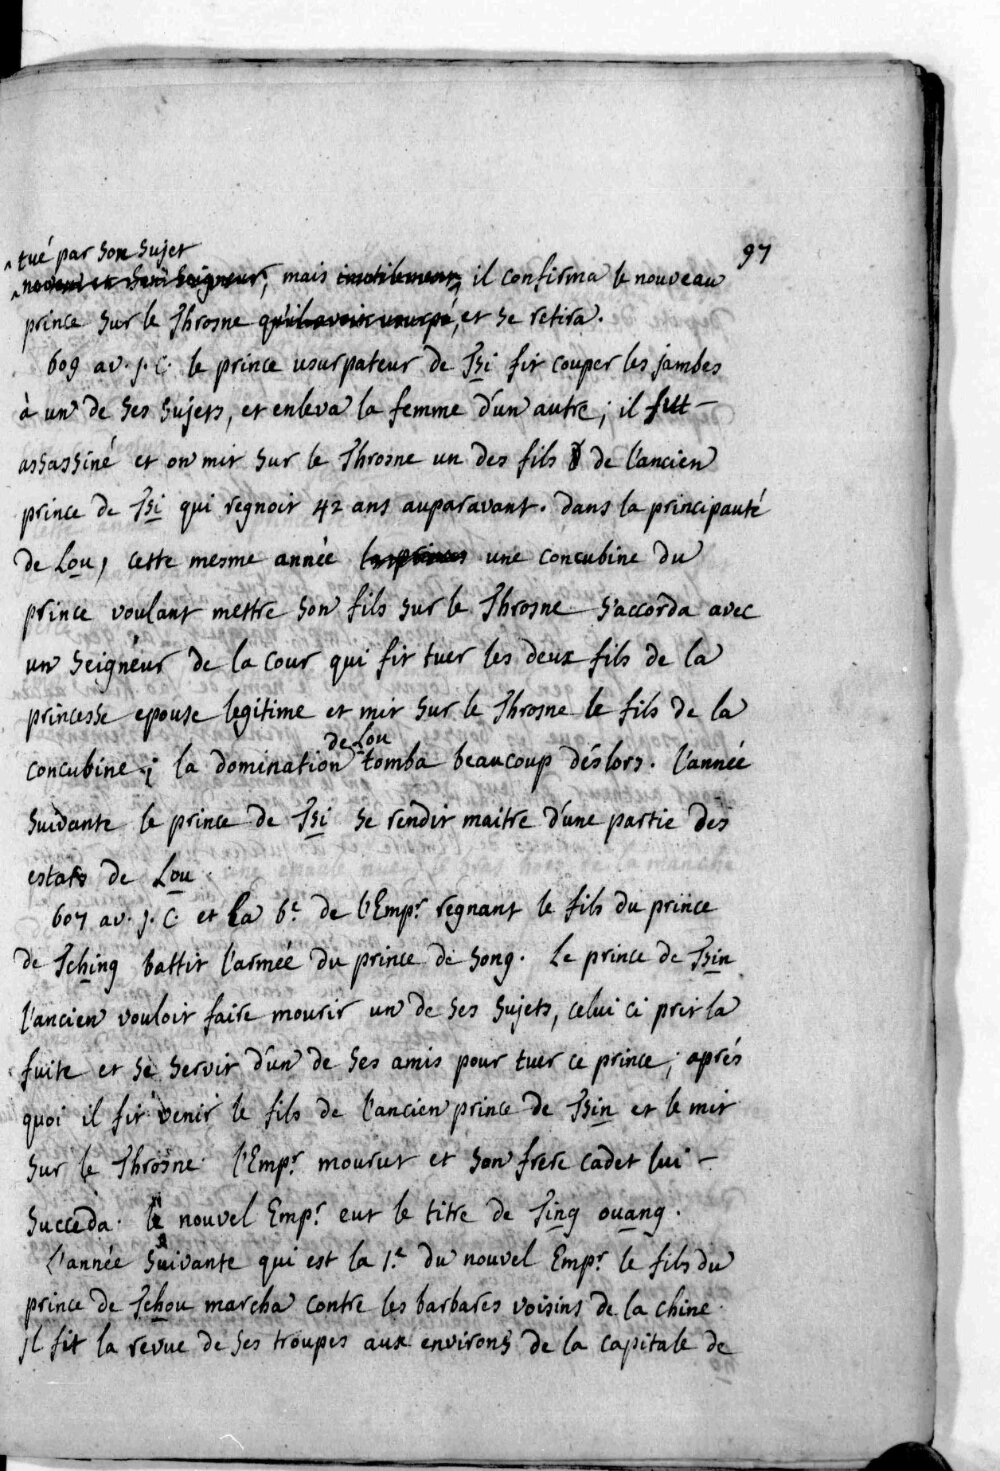 97
tué par son sujet
mais inutilement, il confirma le nouveau
prince sur le Throsne qu'il avoit usurpé, et se retira.
609 av. J. C. le prince usurpateur de Tsi fit couper les jambes
à un de ses sujets, et enleva la femme d'un autre; il fut
assassiné et on mit sur le Throsne un des fils de l'ancien
prince de Tsi qui regnoit 42 ans auparavant. dans la principauté
de Lou, cette mesme année une concubine du
prince voulant mettre son fils sur le Throsne s'accorda avec
un seigneur de la cour qui fit tuer les deux fils de la
princesse epouse legitime et mit sur le Throsne le fils de la
de Lou
concubine; la domination tomba beaucoup déslors. l'année
suivante le prince de Tsi se rendit maitre d'une partie des
estats de Lou.
607 av. J. C. et la 6.e de l'Emp.r regnant le fils du prince
de Tching battit l'armée du prince de Song. Le prince de Tsin
l'ancien vouloit faire mourir un de ses sujets, celui ci prit la
fuite et se servit d'un de ses amis pour tuer ce prince; aprés
quoi il fit venir le fils de l'ancien prince de Tsin et le mit
sur le Throsne. l'Emp.r mourut et son frere cadet lui
succeda. le nouvel Emp.r eut le titre de Ting ouang.
l'année suivante qui est la 1.e du nouvel Emp.r le fils du
prince de Tchou marcha contre les barbares voisins de la chine.
Il fit la revue de ses troupes aux environs de la capitale de